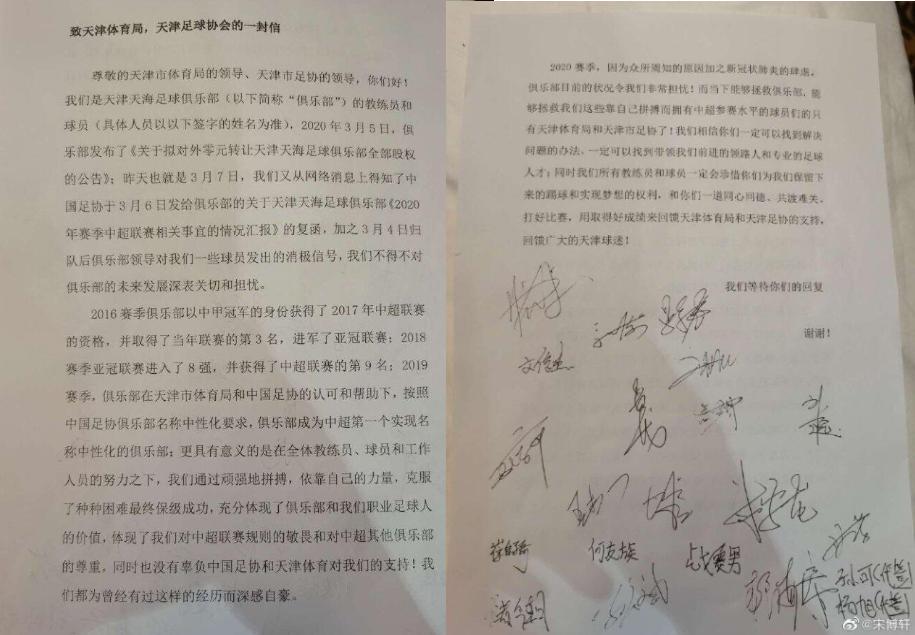 致天津体育局，天津足球协会的一封信
尊敬的天津市体育局的领导、天津市足协的领导，你们好！
我们是天津天海足球俱乐部（以下简称“俱乐部”）的教练员和
球员（具体人员以以下签字的姓名为准），2020年3月5日，俱
乐部发布了《关于拟对外零元转让天津天海足球俱乐部全部股权
的公告》；昨天也就是3月7日，我们又从网络消息上得知了中
国足协于3月6日发给俱乐部的关于天津天海足球俱乐部《2020
年赛季中超联赛相关事宜的情况汇报》的复函，加之3月4日归
队后俱乐部领导对我们一些球员发出的消极信号，我们不得不对
俱乐部的未来发展深表关切和担忧。
2016赛季俱乐部以中甲冠军的身份获得了2017年中超联赛
的资格，并取得了当年联赛的第3名，进军了亚冠联赛；2018
赛季亚冠联赛进入了8强，并获得了中超联赛的第9名；2019
赛季，俱乐部在天津市体育局和中国足协的认可和帮助下，按照
中国足协俱乐部名称中性化要求，俱乐部成为中超第一个实现名
称中性化的俱乐部；更具有意义的是在全体教练员、球员和工作
人员的努力之下，我们通过顽强地拼搏，依靠自己的力量，克服
了种种困难最终保级成功，充分体现了俱乐部和我们职业足球人
的价值，体现了我们对中超联赛规则的敬畏和对中超其他俱乐部
的尊重，同时也没有辜负中国足协和天津体育对我们的支持！我
们都为曾经有过这样的经历而深感自豪。
2020赛季，因为众所周知的原因加之新冠状肺炎的肆虐，
俱乐部目前的状况令我们非常担忧！而当下能够拯救俱乐部、能
够拯救我们这些靠自己拼搏而拥有中超参赛水平的球员们的只
有天津体育局和天津市足协了！我们相信你们一定可以找到解决
问题的办法、一定可以找到带领我们前进的领路人和专业的足球
人才；同时我们所有教练员和球员一定会珍惜你们为我们保留下
来的踢球和实现梦想的权利，和你们一道同心同德、共渡难关，
打好比赛，用取得好成绩来回馈天津体育局和天津足协的支持，
回馈广大的天津球迷！
我们等待你们的回复
谢谢！
何友族
钱赛男
孙可（代签）
杨旭（代签）
@宋博轩